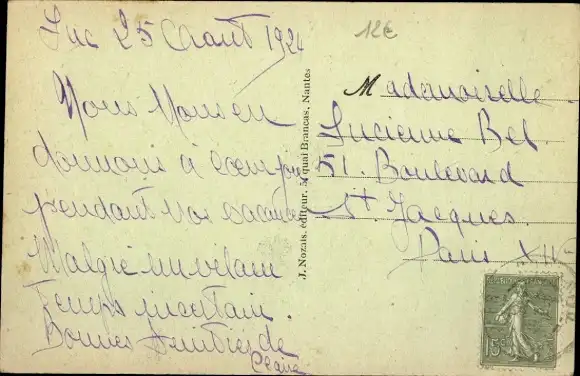 Luc 25 Aout 1924
12€
Nous
donnons à cœur joie
pendant nos vacances
Malgré un
Temps incertain.
Bonnes Amitiés de
J. Nozais, éditeur, 5, quai Brancas, Nantes
Mademoiselle
Lucienne Bel
51. Boulevard
St Jacques.
Paris XIV
15c